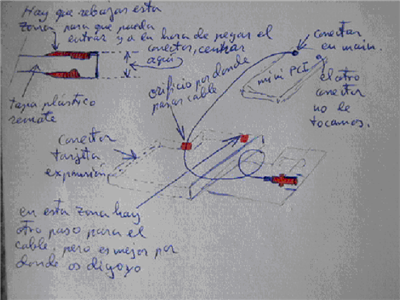 Hay que rebajar esta
zona para que pueda
entrar y a en hora de pegar el
conector, centrar
aquí
tapa plástico
remate
orificio por donde
pasar cable
conectar
en main.
mini PCI
el otro
conector
no le
tocamos.
conector
tarjeta
expansión
en esta zona hay
otro paso para el
cable. pero es mejor por
donde os digo yo